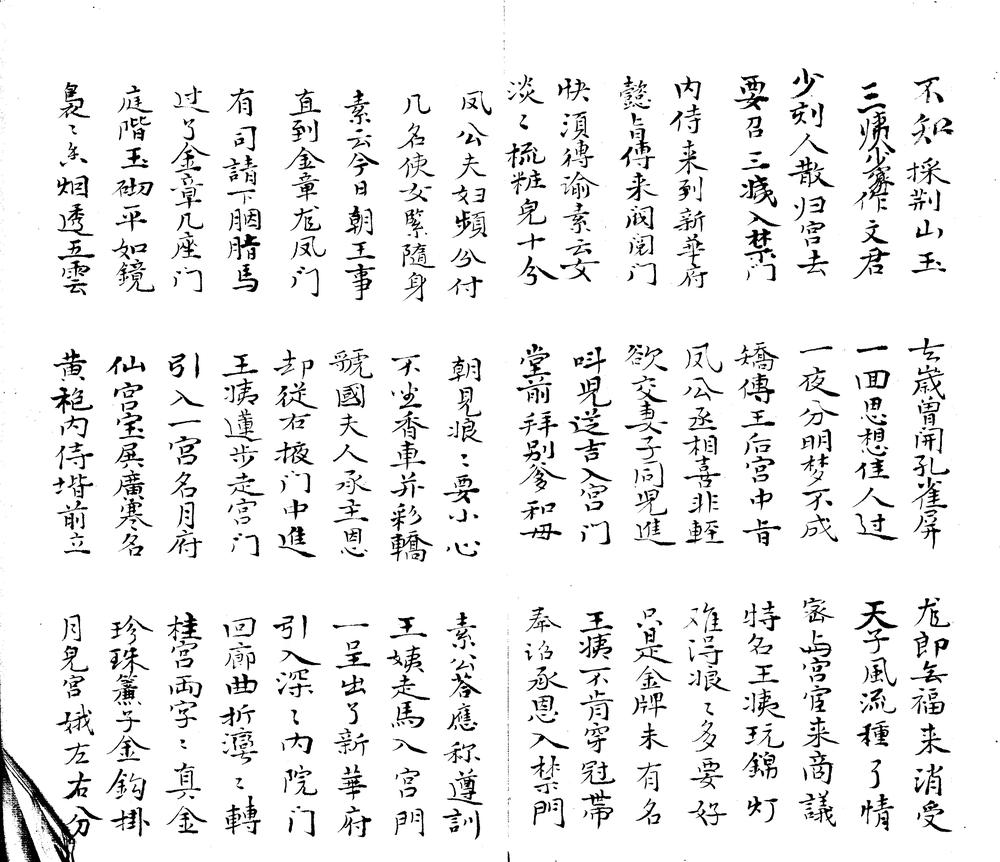 不知採荆山玉 去歲曾開孔雀屏 尨郎無福来消受
三姨作文君 一囬思想佳人过 天子風流種了情
少刻人散归宫去 一夜分明梦不成 密与宫官来商議
要召三姨入禁门 矯傳王后宫中旨 特名王姨玩錦灯
内侍来到新華府 凤公丞相喜非輕 难得娘〻多要好
懿旨傳来阀閱门 欲交妻子同児進 只是金牌未有名
快須傳谕素云女 呌児送吉入宫门 王姨不肯穿冠帶
淡〻梳粧皃十分 堂前拜别爹和母 奉诏承恩入禁門
凤公夫妇頻分付 朝見娘〻要小心 素公荅應称遵訓
几名使女緊隨身 不坐香車并彩轎 王姨走馬入宫門
素云今日朝王事 虢國夫人承主恩 一呈出了新華府
直到金章尨凤门 却從右掖门中進 引入深〻内院门
有司請下胭脂馬 王姨蓮步走宫门 回廊曲折灣〻轉
过了金章几座门 引入一宫名月府 桂宫両字〻真金
庭階玉砌平如鏡 仙宫宝屏廣寒名 珍珠簾子金鈎掛
裊〻香烟透五雲 黄袍内侍堦前立 月皃宫娥左右分